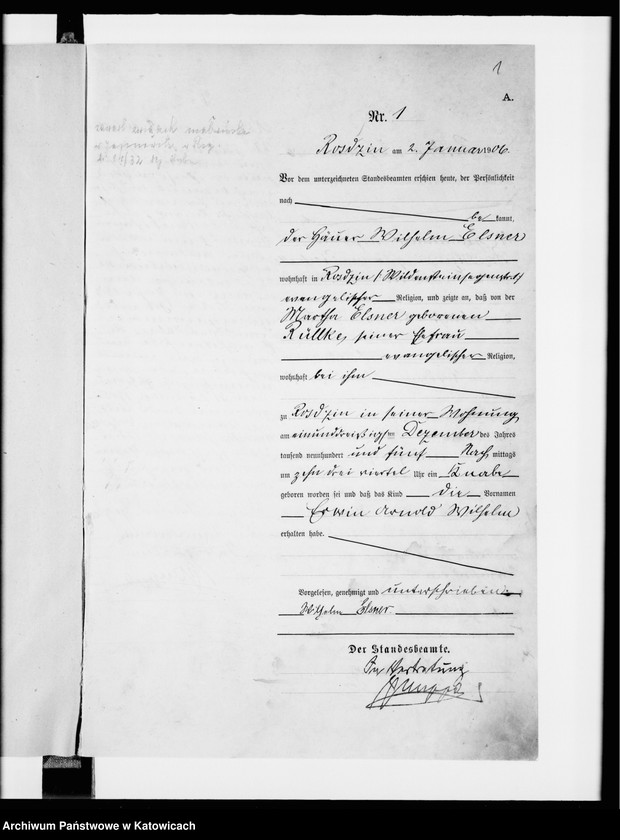 1
A.
Nr. 1
Rosdzin am 2. Januar 1906.
Vor dem unterzeichneten Standesbeamten erschien heute, der Persönlichkeit
nach be kannt,
der Häuer Wilhelm Elsner
wohnhaft in Rosdzin
evangelischer Religion, und zeigte an, daß von der
Martha Elsner geborenen
Rüllke, seiner Ehefrau
evangelischer Religion,
wohnhaft bei ihm
zu Rosdzin in seiner Wohnung
am einunddreißigsten Dezember des Jahres
tausend neunhundert und fünf Nach mittags
um zehn drei viertel Uhr ein Knabe
geboren worden sei und daß das Kind die Vornamen
Erwin Arnold Wilhelm
erhalten habe.
Vorgelesen, genehmigt und unterschrieben
Wilhelm Elsner
Der Standesbeamte.
In Vertretung
Archiwum Państwowe w Katowicach